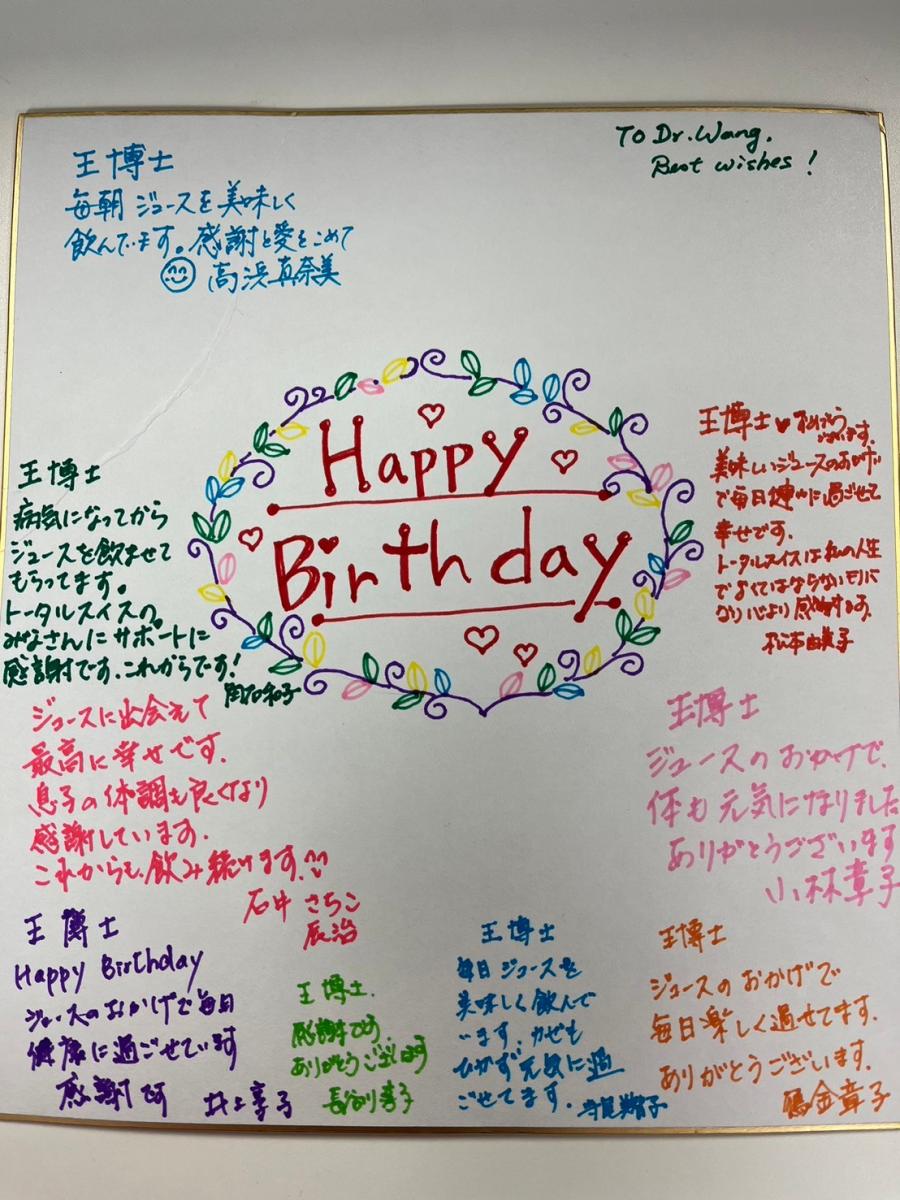 王博士
毎朝 ジュースを美味しく
飲んでいます。感謝と愛をこめて
高浜真奈美
To Dr. Wang.
Best wishes!
Happy
Birthday
王博士
病気になってから
ジュースを飲ませて
もらってます。
トータルスイスの
みなさんにサポートに
感謝です。これからです!
和子
王博士♥
ございます。
美味しいジュースのおかげ
で毎日 に過ごせて
幸せです。
トータルスイスは私の人生
で なくてはならないモノ
心より感謝します。
松本由美子
ジュースに出会えて
最高に幸せです。
息子の体調も良くなり
感謝しています。
これからも飲み続けます。
石中 さちこ
辰治
王博士
ジュースのおかげで、
体も元気になりました
ありがとうございます
小林章子
王博士
Happy Birthday
ジュースのおかげで毎日
健康に過ごせています
感謝です
井上享子
王博士.
感謝です
ありがとうございます
長谷川孝子
王博士
毎日ジュースを
美味しく飲んで
います。カゼも
ひかず元気に過
ごせてます。
王博士
ジュースのおかげで
毎日楽しく過せてます.
ありがとうございます.
金章子